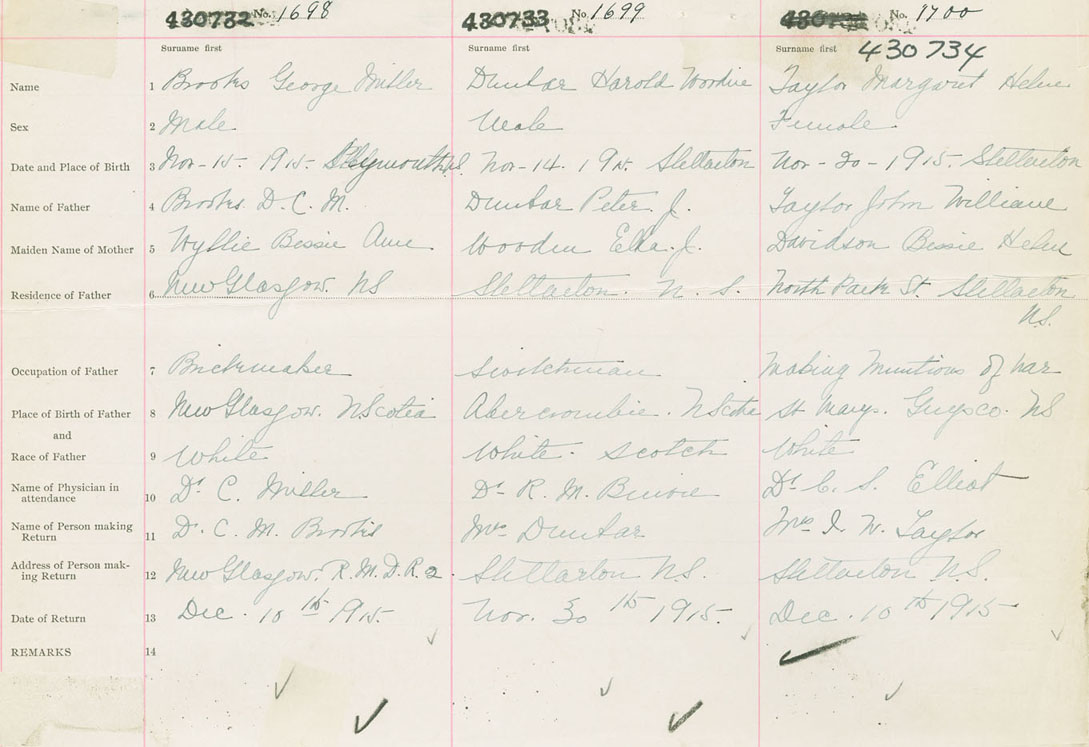 430732 No. 1698 430733 No. 1699 No. 1700
Surname first Surname first Surname first 430734
Name 1 Brooks George Miller Dunbar Harold Taylor Margaret Helen
Sex 2 Male Male Female
Date and Place of Birth 3 Nov-15-1915- Nov-14. 1915. Stellarton Nov-20-1915. Stellarton
Name of Father 4 Brooks. D. C. M. Dunbar Peter. J. Taylor John William
Maiden Name of Mother 5 Wyllie Bessie Ann Davidson Bessie Helen
Residence of Father 6 New Glasgow. NS Stellarton. N. S. North Park St. Stellarton
N.S.
Occupation of Father 7 Brickmaker Switchman Making Munitions of War
Place of Birth of Father 8 New Glasgow. NScotia Abercrombie. St Marys. Guysco. NS
and
Race of Father 9 White White. Scotch White
Name of Physician in
attendance 10 Dr C. Miller Dr R. M. Dr C. S. Elliot
Name of Person making
Return 11 D. C. M. Brooks Mrs Dunbar Mrs Taylor
Address of Person mak-
ing Return 12 New Glasgow. R. M. D. R. 2. Stellarton N.S. Stellarton N.S.
Date of Return 13 Dec. 10th 1915. Nov. 30th 1915. Dec. 10th 1915
REMARKS 14